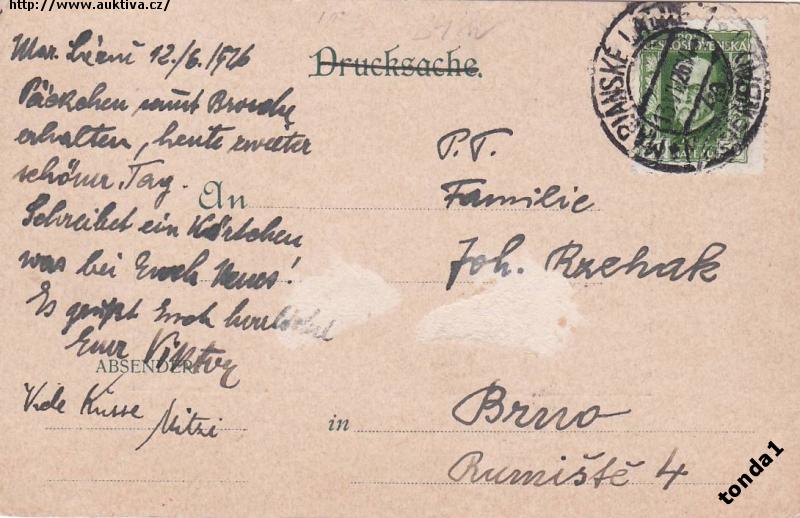 http://www.auktiva.cz/
Drucksache.
12./6. 1926
Päckchen samt
erhalten, heute zweiter
schöner Tag.
Schreibet ein Kärtchen
was bei Euch Neues!
Es grüßt Euch
Euer Viktor
Viele Küsse
Mitzi
An
ABSENDER:
in
P.T.
Familie
Joh. Rzehak
Brno
Rumiště 4
MARIÁNSKÉ LÁZNĚ 1
MARIENBAD
ČESKOSLOVENSKÁ
tonda1